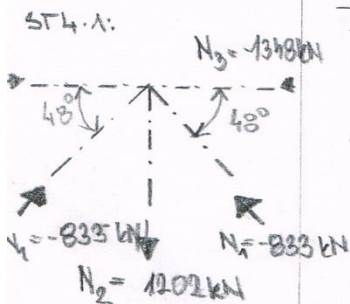 ST4.1:
N3=-1348kN
48°
48°
N1=-833kN
N1=-833kN
N2= 1202kN